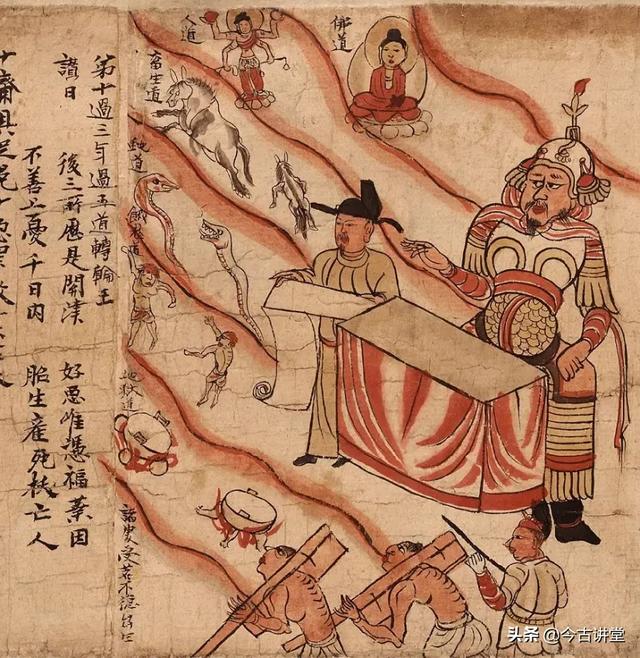 佛道
人道
畜生道
餓鬼道
地獄道
第十過三年過五道轉輪王
讃曰 後三所歷是關津 好惡惟憑福業因
不善上憂千日內 胎生産死拔亡人
十齋具足免十惡罪
头条 @今古讲堂